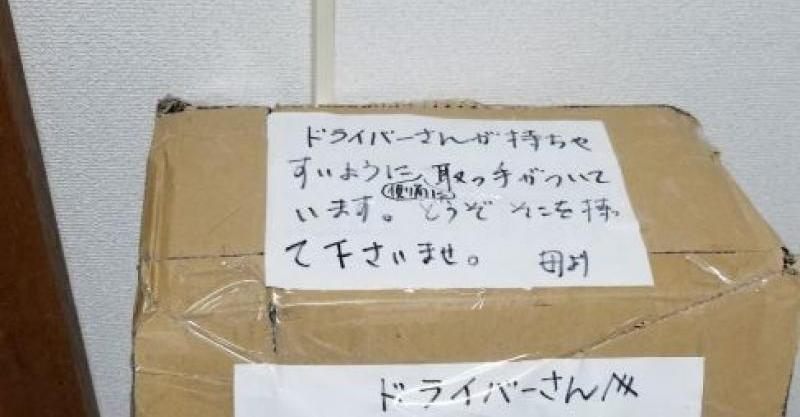 ドライバーさんが持ちや
すいように、取っ手がついて
側面に
います。どうぞそこを持っ
て下さいませ。 母より
ドライバーさんへ